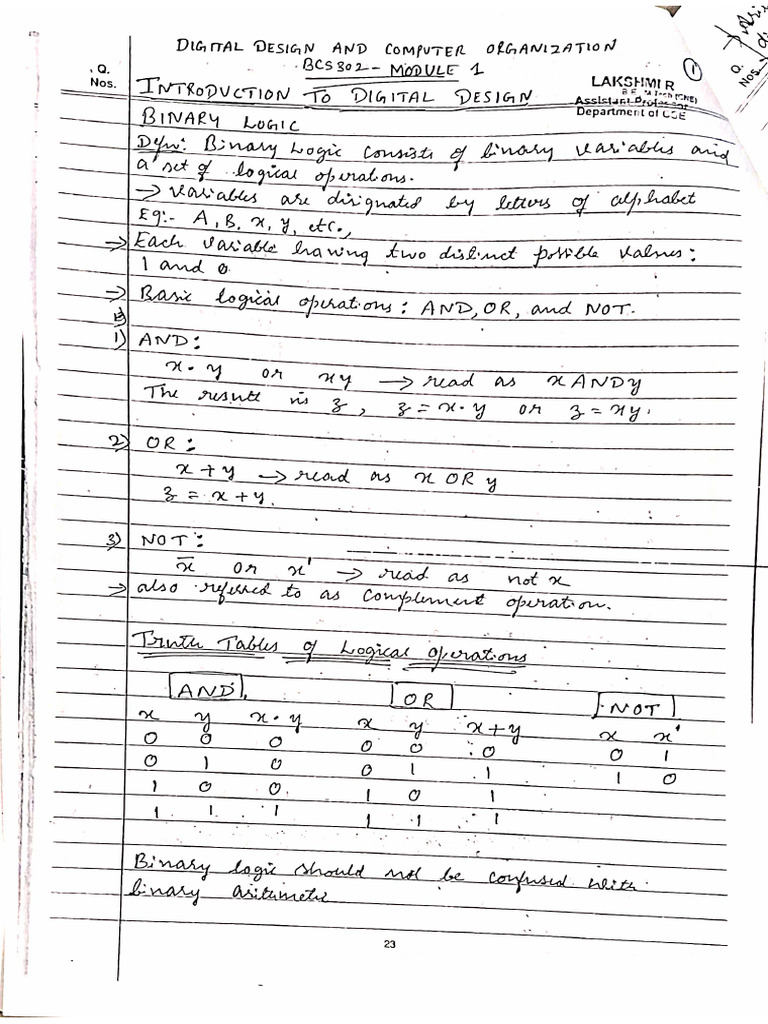 DIGITAL DESIGN AND COMPUTER ORGANIZATION
BCS302 - MODULE 1
1
Q.
Nos.
Q.
Nos.
INTRODUCTION TO DIGITAL DESIGN
LAKSHMI R
B.E. M.Tech (CNE)
Assistant Professor
Department of CSE
BINARY LOGIC
Defn: Binary Logic consists of binary variables and
a set of logical operations.
→ Variables are disignated by letters of alphabet
Eg:- A, B, x, y, etc.,
→ Each variable having two distinct possible values:
1 and 0
→ Basic logical operations: AND, OR, and NOT.
1) AND:
x·y or xy → read as x AND y
The result is z, z = x·y or z = xy.
2) OR:
x + y → read as x OR y
z = x + y.
3) NOT:
x̅ or x' → read as not x
→ also referred to as complement operation.
Truth Tables of Logical Operations
AND OR NOT
x y x·y x y x+y x x'
0 0 0 0 0 0 0 1
0 1 0 0 1 1 1 0
1 0 0 1 0 1
1 1 1 1 1 1
Binary logic should not be confused with
binary arithmetic
23